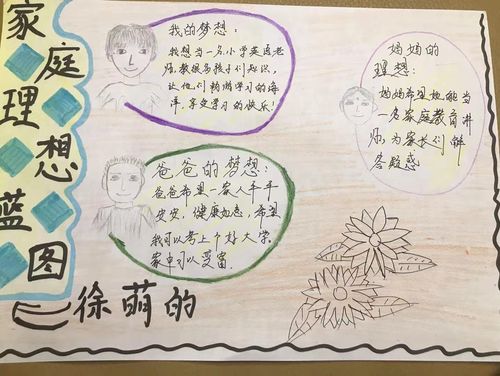 家庭理想蓝图
徐萌的
我的梦想：
我想当一名小学英语老
师，教授给孩子们知识，
让他们畅游学习的海
洋，享受学习的快乐！
妈妈的
理想：
妈妈希望她能当
一名家庭教育讲
师，为家长们解
答疑惑
爸爸的梦想：
爸爸希望一家人平平
安安，健康如意，希望
我可以考上个好大学。
家中可以变富